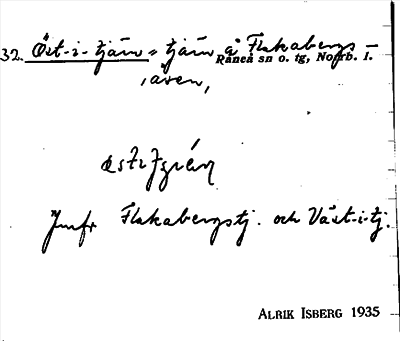 32. Öst-i-tjärn = tjärn å Flakabergs-
Råneå sn o. tg, Norrb. l.
Jmfr Flakabergstj. och Väst-i-tj.
ALRIK ISBERG 1935